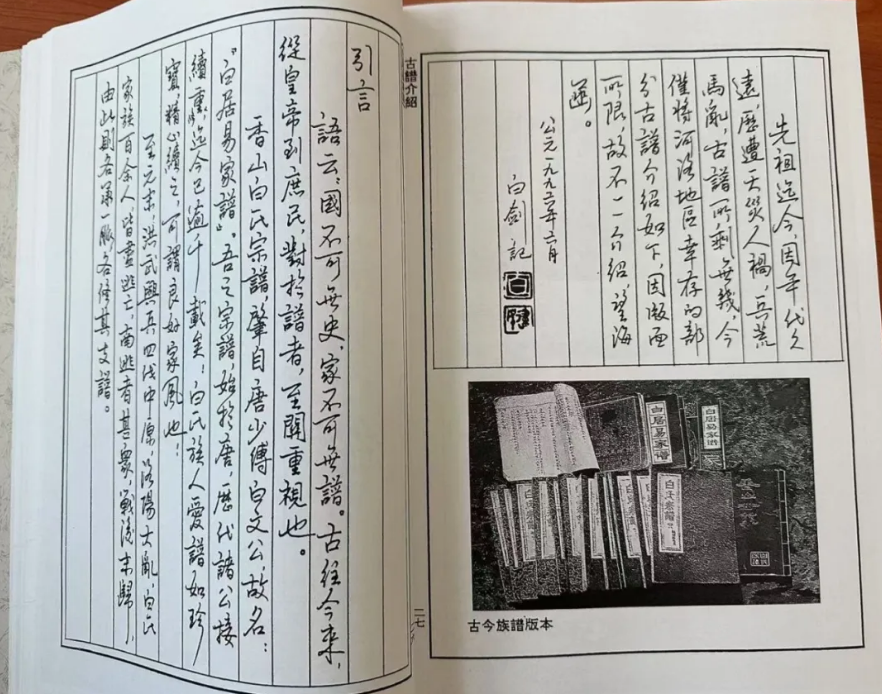 古譜介紹
先祖迄今，因年代久
遠，歷遭天災人禍，兵荒
馬亂，古譜所剩無幾，今
僅將河洛地區幸存的部
分古譜介紹如下，因版面
所限，故不一一介紹，望海
涵。
公元一九九 年 月
白劍記
白居易家譜
白居易家譜
古今族譜版本
引言
語云：國不可無史，家不可無譜。古往今來，
從皇帝到庶民，對於譜者，至關重視也。
香山白氏宗譜，肇自唐少傅白文公，故名：
“白居易家譜”。吾之宗譜，始於唐，歷代諸公接
續重，迄今已逾千載矣！白氏族人愛譜如珍
寶，精心續之，可謂良好家風也！
至元末，洪武興兵四伐中原，洛陽大亂，白氏
家族百余人，皆盡逃亡，南逃者甚衆，戰後未歸，
由此則各第一脈，各修其支譜。
二七